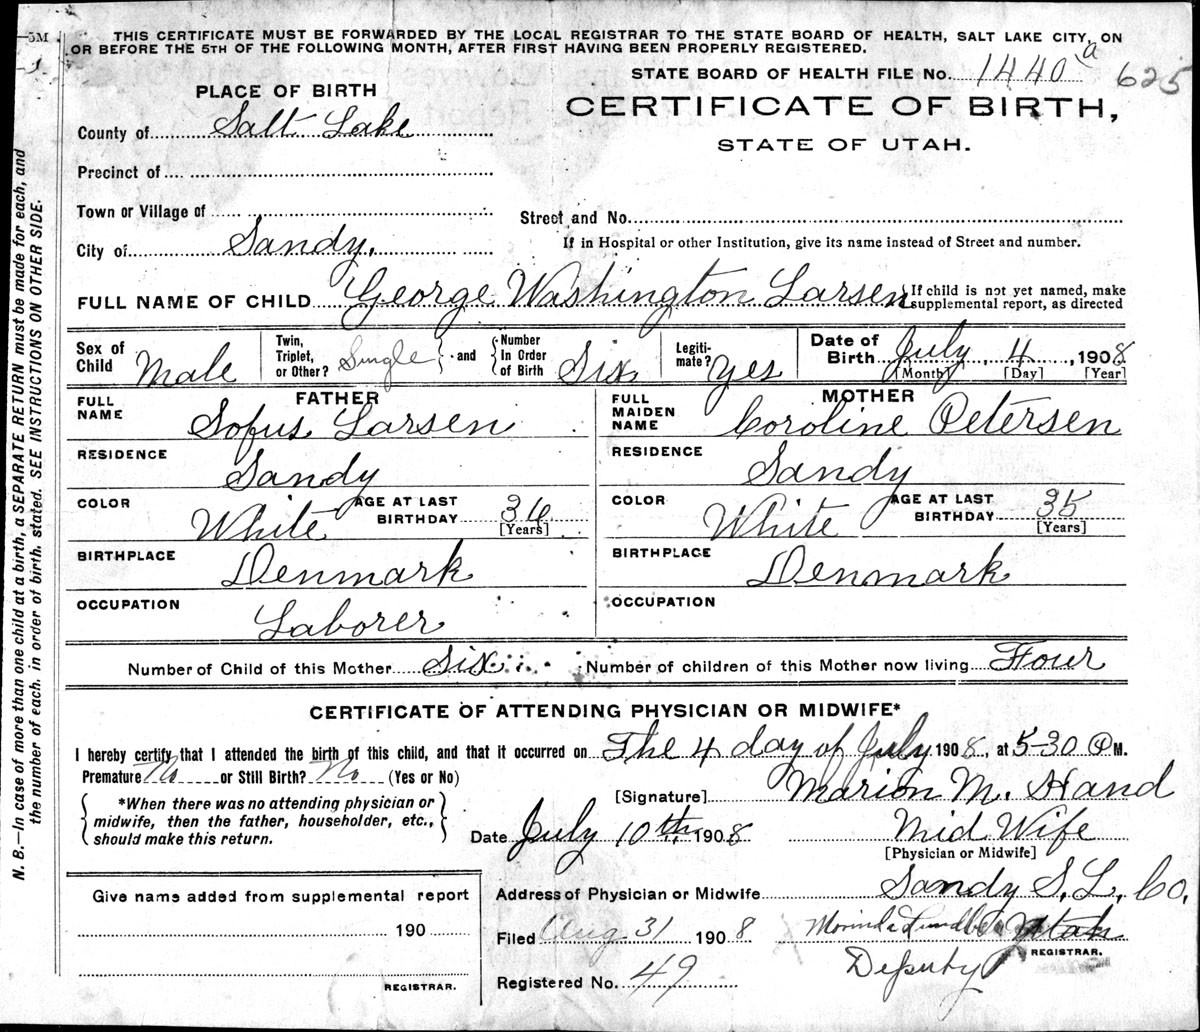 5M
THIS CERTIFICATE MUST BE FORWARDED BY THE LOCAL REGISTRAR TO THE STATE BOARD OF HEALTH, SALT LAKE CITY, ON
OR BEFORE THE 5TH OF THE FOLLOWING MONTH, AFTER FIRST HAVING BEEN PROPERLY REGISTERED.
STATE BOARD OF HEALTH FILE No. 1440 a 625
PLACE OF BIRTH
CERTIFICATE OF BIRTH,
STATE OF UTAH.
County of Salt Lake
Precinct of
Town or Village of
Street and No.
City of Sandy.
If in Hospital or other Institution, give its name instead of Street and number.
FULL NAME OF CHILD George Washington Larsen If child is not yet named, make
supplemental report, as directed
Sex of Child Male Twin, Triplet, or Other? Single and Number In Order of Birth Six Legiti-mate? Yes Date of Birth July 4, 1908
[Month] [Day] [Year]
FATHER MOTHER
FULL NAME Sofus Larsen FULL MAIDEN NAME Coroline Petersen
RESIDENCE Sandy RESIDENCE Sandy
COLOR White AGE AT LAST BIRTHDAY COLOR White AGE AT LAST BIRTHDAY 35
[Years] [Years]
BIRTHPLACE Denmark BIRTHPLACE Denmark
OCCUPATION Laborer OCCUPATION
Number of Child of this Mother Six Number of children of this Mother now living Four
CERTIFICATE OF ATTENDING PHYSICIAN OR MIDWIFE*
I hereby certify that I attended the birth of this child, and that it occurred on The 4 day of July 1908, at 5-30 P M.
Premature No or Still Birth? No (Yes or No)
*When there was no attending physician or
midwife, then the father, householder, etc.,
should make this return.
[Signature] Marion M. Hand
Date July 10th, 1908 Mid Wife
[Physician or Midwife]
Address of Physician or Midwife Sandy S. L. Co.
Utah
Give name added from supplemental report
190
REGISTRAR.
Filed Aug 31 1908
REGISTRAR.
Deputy
Registered No. 49
N. B.—In case of more than one child at a birth, a SEPARATE RETURN must be made for each, and
the number of each, in order of birth, stated. SEE INSTRUCTIONS ON OTHER SIDE.